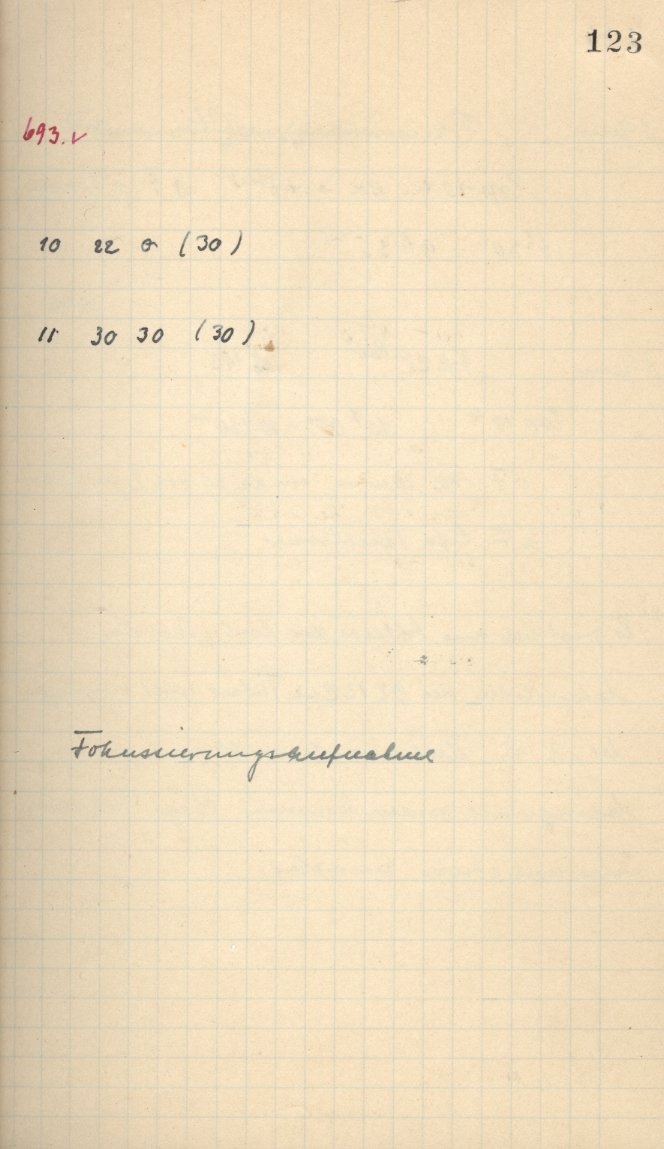 123
693. ✓
10 22 0 (30)
11 30 30 (30)
Fokussierungsaufnahme